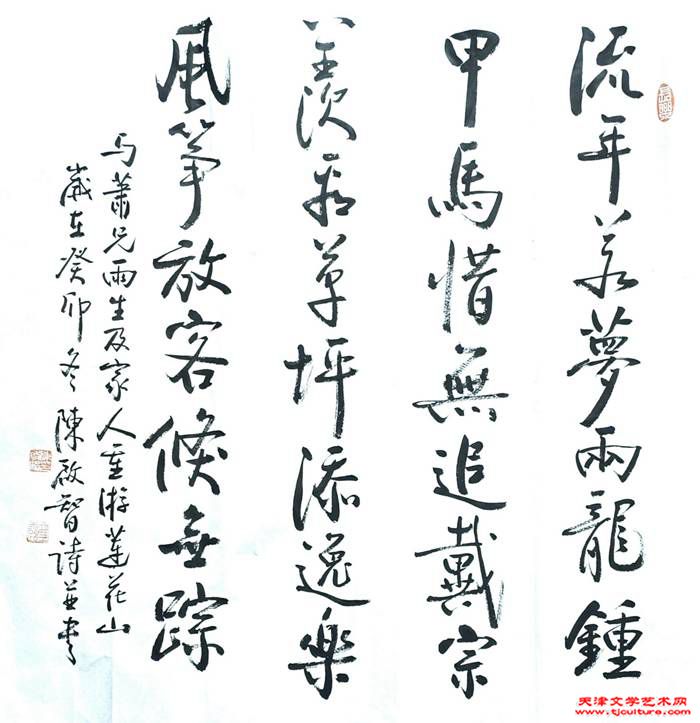 流年若夢兩龍鍾
甲馬惜無追戴宗
羨看草坪添逸樂
風箏放客倏無踪
与蕭兄雨生及家人重游蓮花山
歲在癸卯冬陳啟智詩並書
天津文学艺术网
www.tjculture.com